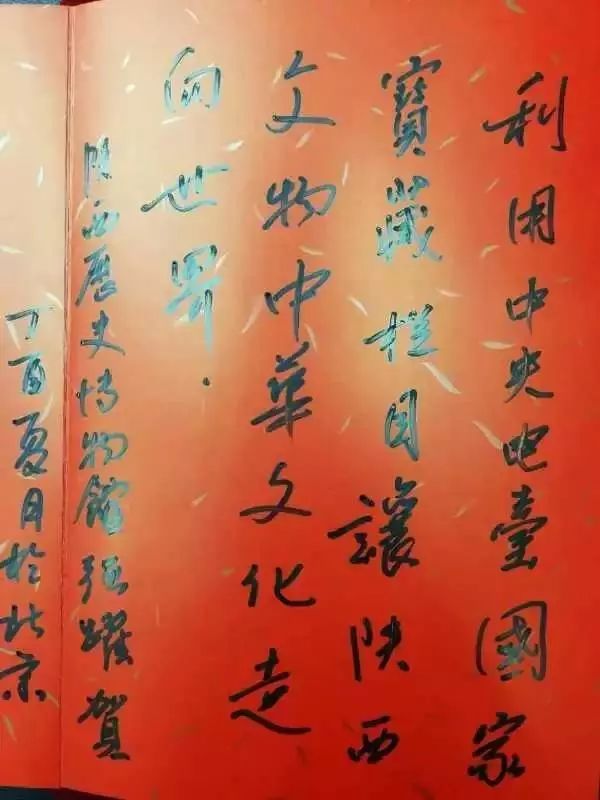 利用中央电臺國家
寶藏栏目讓陕西
文物中華文化走
向世界.
陕西歷史博物館强躍賀
丁酉夏月於北京